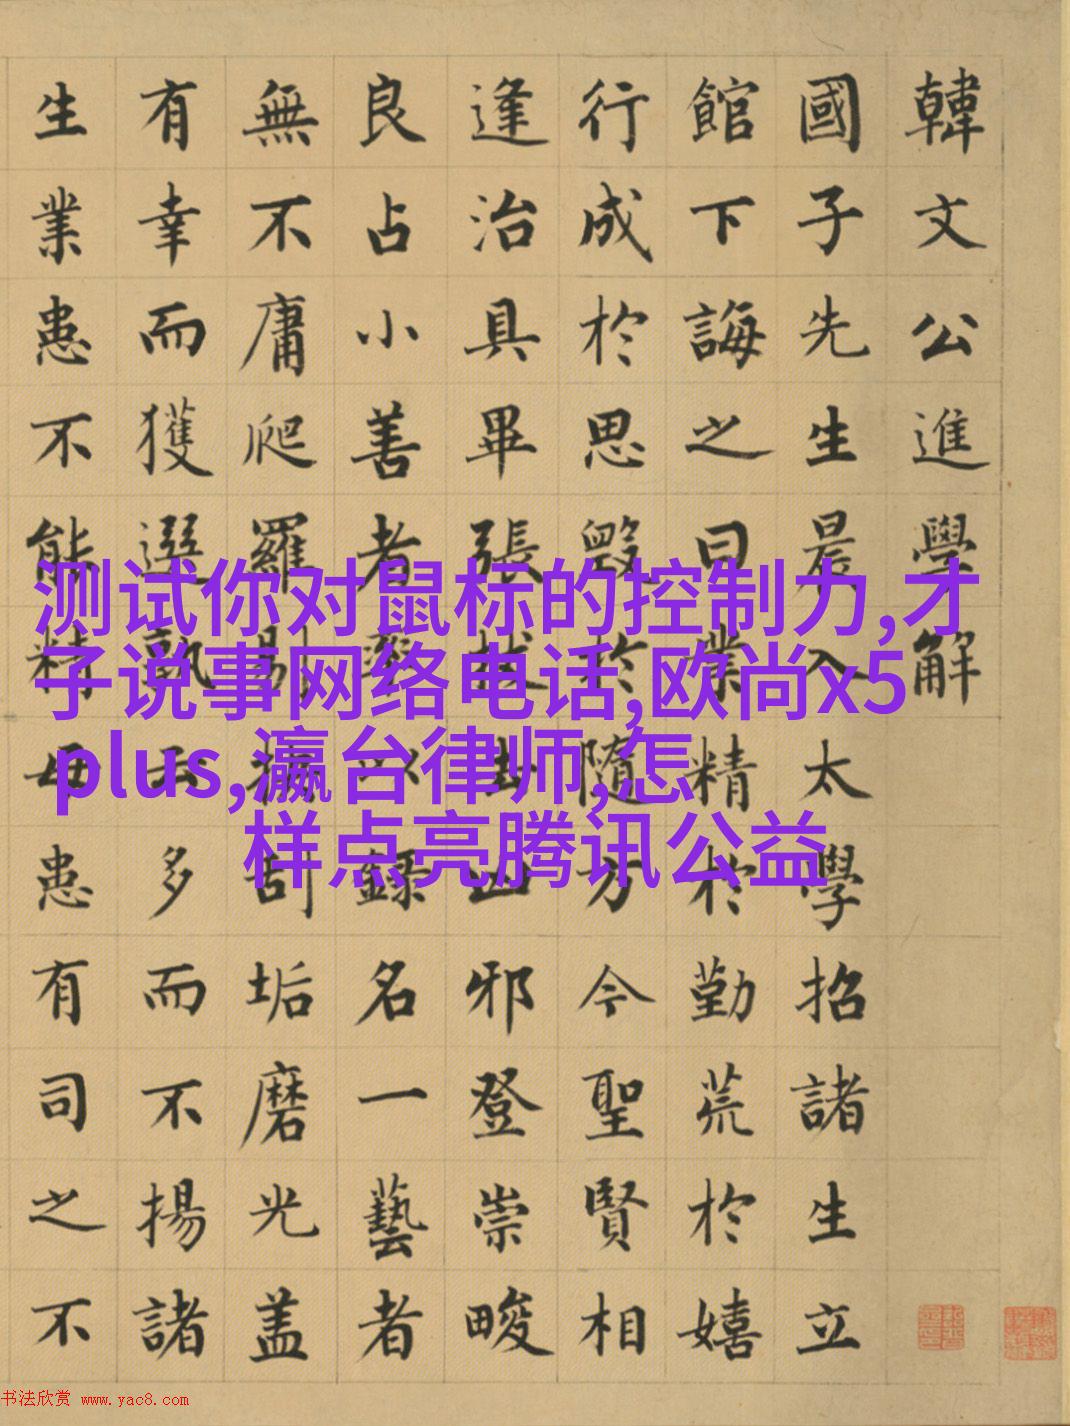 韓文公進學解
國子先生晨入太學招諸生立
館下誨之曰業精於勤荒於嬉
行成於思毀於隨方今聖賢相
逢治具畢張拔去凶邪登崇畯
良占小善者率以錄名一藝者
無不庸爬羅剔抉刮垢磨光盖
有幸而獲選孰云多而不揚諸
生業患不能精毋患有司之不
测试你对鼠标的控制力,才
子说事网络电话,欧尚x5
plus,瀛台律师,怎
样点亮腾讯公益
书法欣赏 www.yac8.com